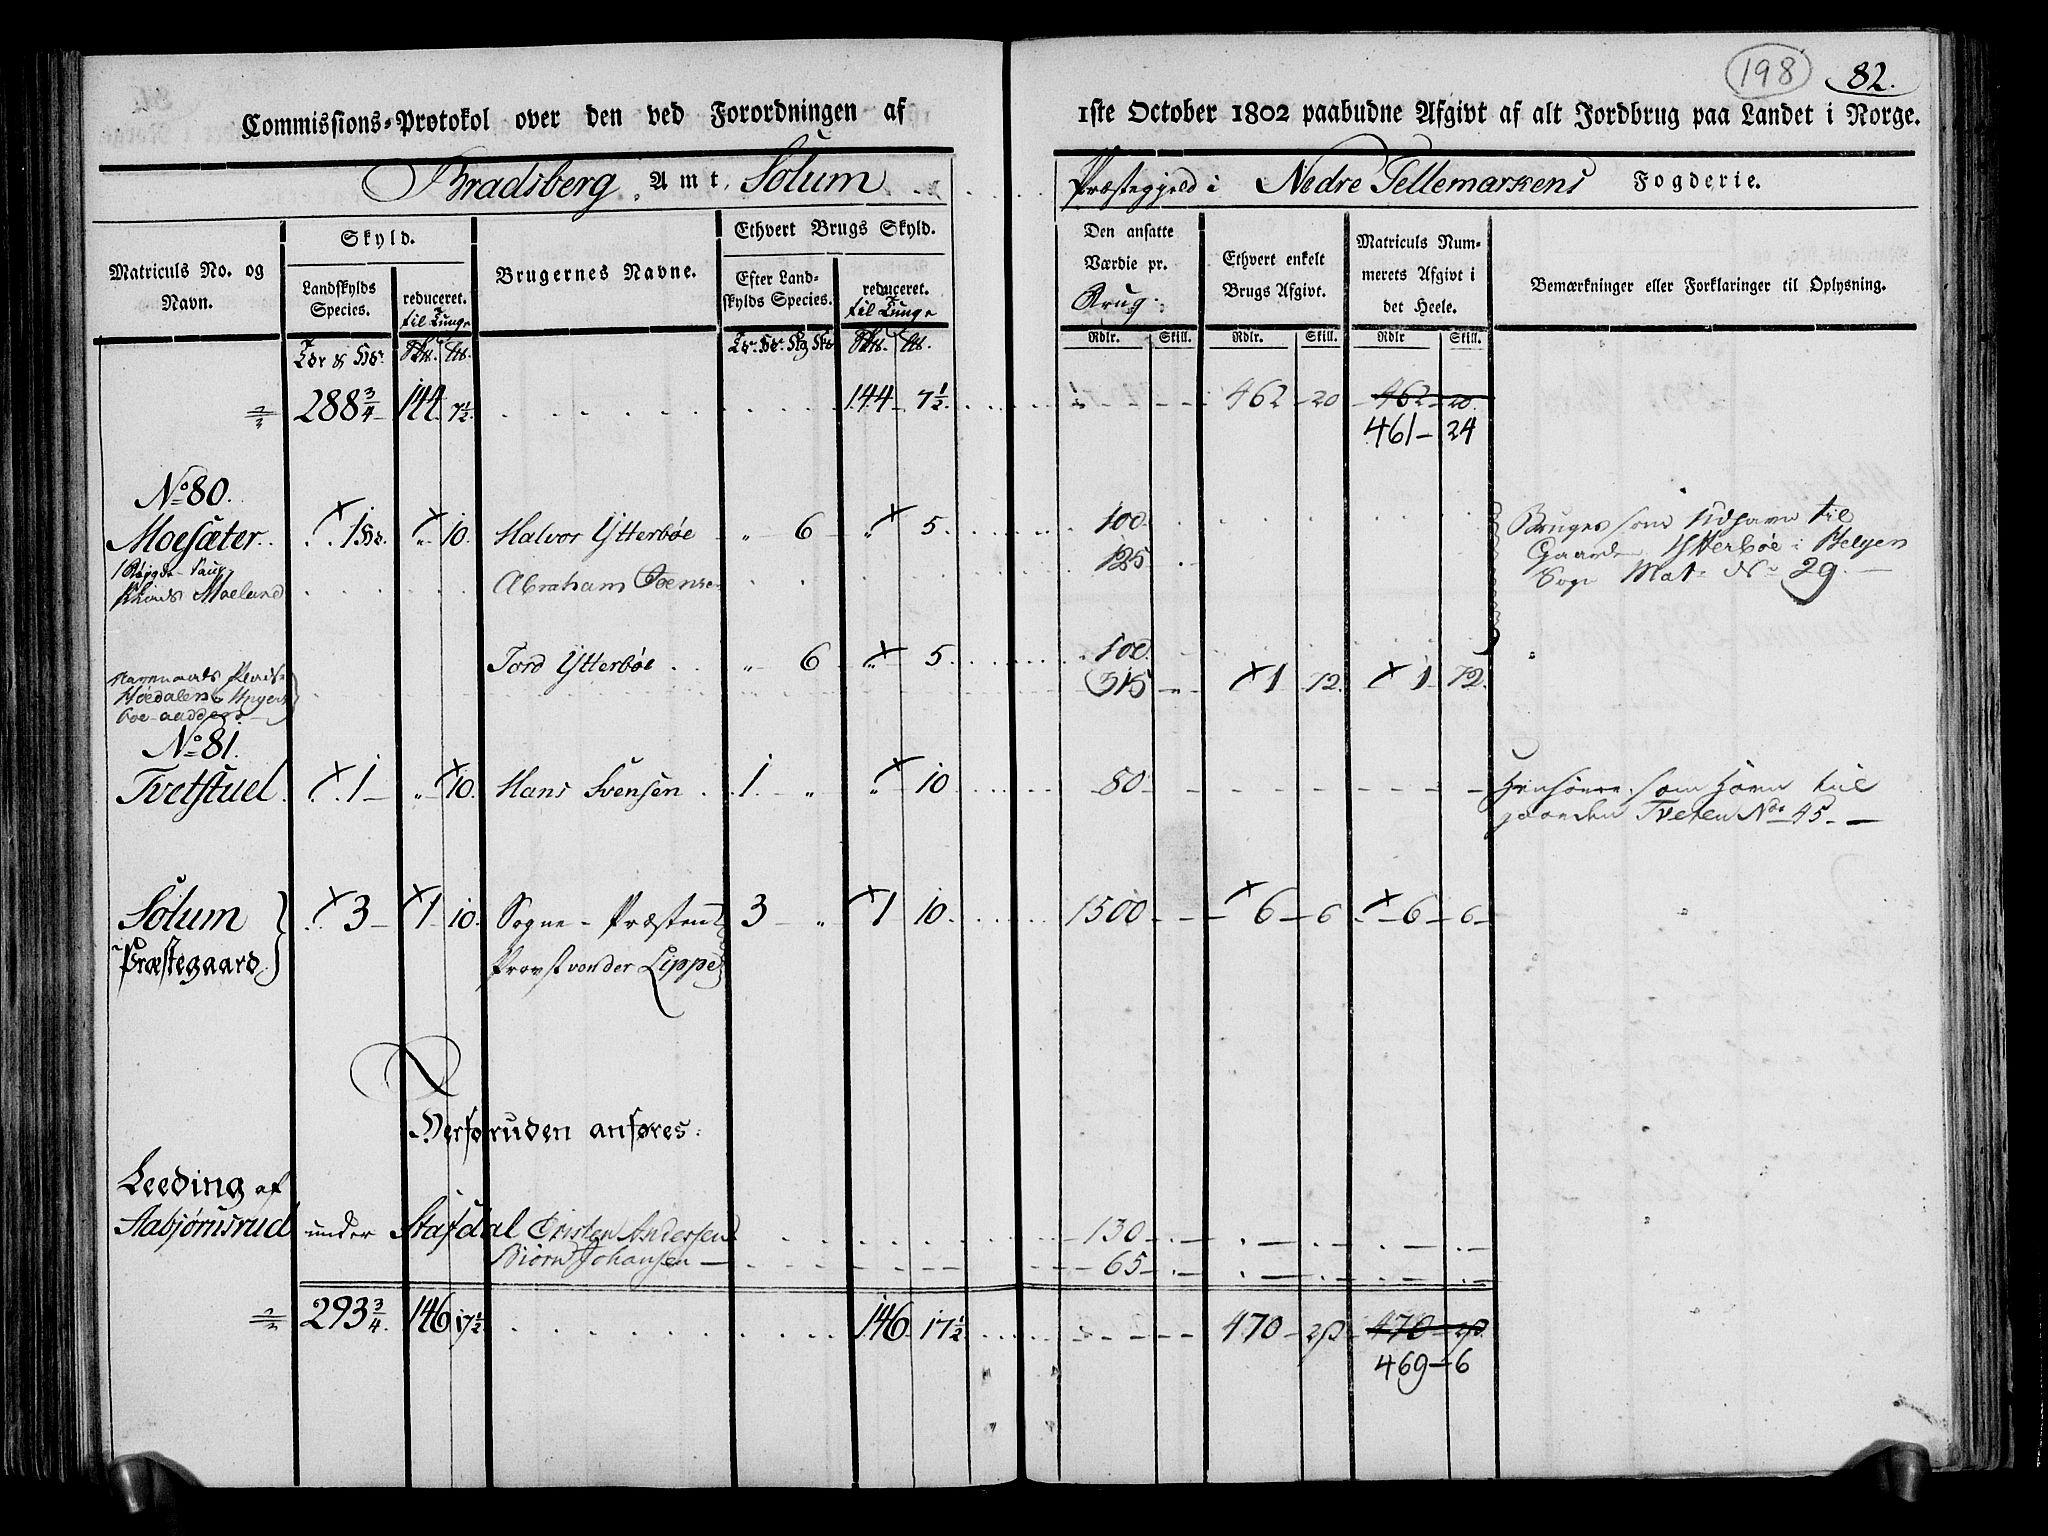 198 82.
Commissions-Protokol over den ved Forordningen af 1ste October 1802 paabudne Afgivt af alt Jordbrug paa Landet i Norge.
Bradsberg Amt, Solum Præstegjeld i Nedre Tellemarkens Fogderie.
Matriculs No. og Navn.
Skyld.
Landskylds Species.
reduceret. til Tunge
Brugernes Navne.
Ethvert Brugs Skyld.
Efter Landskylds Species.
reduceret. til Tunge
Den ansatte Værdie pr. Brug.
Ethvert enkelt Brugs Afgivt.
Matriculs Nummerets Afgivt i det Heele.
Bemærkninger eller Forklaringer til Oplysning.
Rdlr. Skill. Rdlr. Skill. Rdlr Skill.
288 3/4 144 7 1/2 144 7 1/2 462 20 462 20
461 24
No 80.
Moesæter 1 Hd. 10. Halvor Ytterbøe 6 5 100 Bruges som Udhavn til
125 Gaarden Ytterbøe i Melgen
Moeland Abraham Sogn Mat. No 29.
Tord Ytterbøe 6 5 100
Høedalen 315 1 72 1 72
No 81.
Tvetstuel 1 10 Hans Svensen 1 10 80 som Havn til
gaarden Tveten No 45.
Solum 3 1 10. Sogne-Præsten 3 1 10 1500 6 6 6 6
Præstegaard Provst von der Lippe
Herforuden anføres:
Leeding af
Aabjørnsrud under Stafdal Cristen Andersen 130
Biørn Johansen 65
293 3/4 146 17 1/2 146 17 1/2 470 28 470 28
469 6